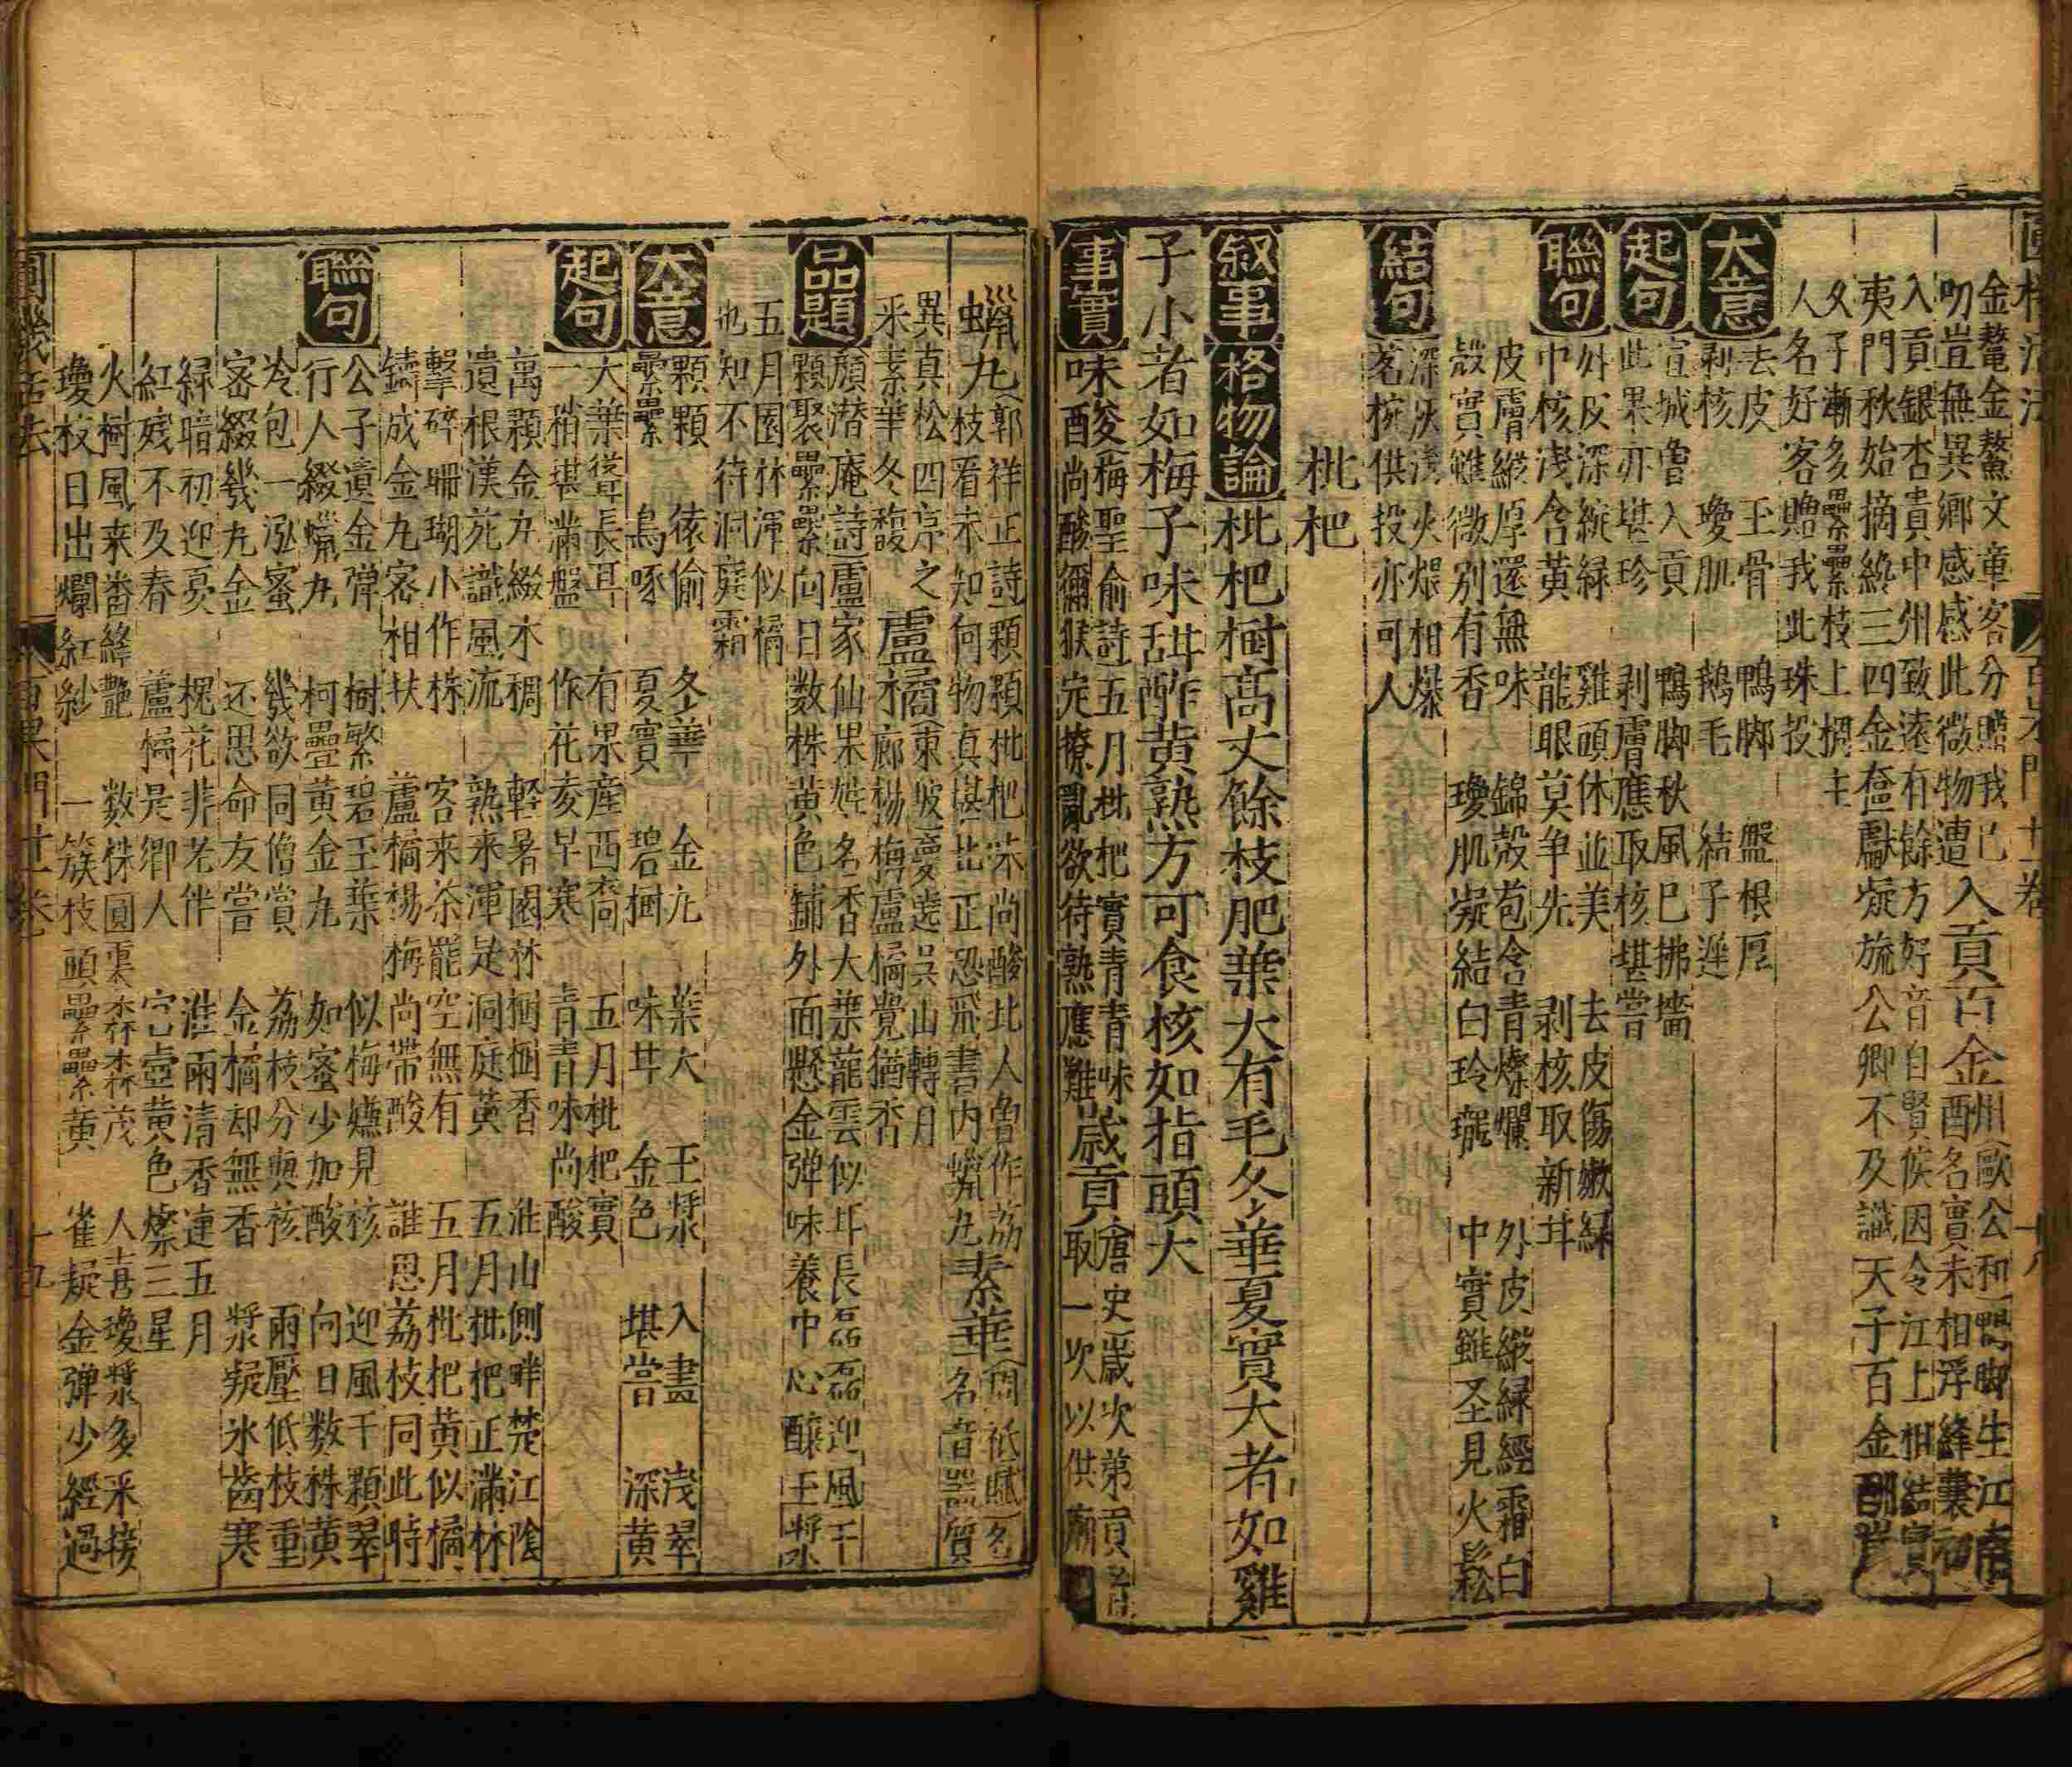 圓機活法 百果門十一卷 十八
金鼇金鰲文章客分贈我已
吻豈無異鄉感感此微物遭入貢百金州歐公和鴨脚生江南
入貢銀杏貴中州致遠有餘方好音自賢侯因令江上相結實
夷門秋始摘纔三四金奩獻凝旒公卿不及識天子百金酬
又子漸多纍纍枝上稠主
人名好客贈我此珠投
大意
去皮 玉骨 鴨脚 盤根厚
剥核 瓊肌 鵝毛 結子遲
起句
宣城曾入貢 鴨脚秋風已拂墻
此果亦堪珍 剥膚應取核堪嘗
聯句
外皮深綻緑 雞頭休並美 去皮傷嫩緑
中核淺含黄 龍眼莫争先 剥核取新甘
皮膚縱厚還無味 錦殻苞含青燦爛 外皮縱緑經霜白
殻實雖微别有香 瓊肌凝結白玲瓏 中實雖圣見火鬆
結句
深灰淺火煨相爆
茗椀供投亦可人
枇杷
叙事
格物論
枇杷樹高丈餘枝肥葉大有毛冬華夏實大者如雞
子小者如梅子味甜酢黄熟方可食核如指頭大
事實
味酸梅聖俞詩五月枇杷實青青味
尚酸獼猴定撩亂欲待熟應難歲貢唐史歲次第貢
取一次以供廟
蠟丸郭祥正詩顆顆枇杷味尚酸北人曾作荔
枝看未知何物真堪比正恐飛書内蠟丸素華周祗賦名
異真松四序之 名音器質
采素華冬馥盧橘東坡夢遶吳山轉月
廊楊梅盧橘覺猶香
品題
顔潜庵詩盧家仙果姓名香大葉龍雲似耳長磊磊迎風千
顆聚纍纍向日数株黄色鋪外面懸金弹味養中心釀玉漿
五月園林渾似橘
也知不待洞庭霜
大意
顆顆 猿偷 冬華 金丸 葉大 玉漿 入畫 淺翠
纍纍 鳥啄 夏實 碧樹 味甘 金色 堪嘗 深黄
起句
大葉聳長耳 有果産西裔 五月枇杷實
一稍堪滿盤 作花麦早寒 青青味尚酸
萬顆金丸綴木稠 輕暑園林樹樹香 淮山側畔楚江陰
遺根漢苑識風流 熟来渾是洞庭黄 五月枇杷正滿林
擊碎珊瑚小作株 客来茶罷空無有 五月枇杷黄似橘
鑄成金丸密相扶 蘆橘楊梅尚帶酸 誰思荔枝同此時
聯句
公子遺金弹 樹繁碧玉葉 似梅嬚見核 迎風千顆翠
行人綴蠟丸 柯疊黄金丸 如蜜少加酸 向日数株黄
冷包一泓蜜 幾欲同僧賞 荔枝分輿核 雨壓低枝重
密綴幾丸金 还思命友嘗 金橘却無香 漿凝氷齒寒
緑暗初迎夏 槐花非老伴 淮雨清香連五月
紅殘不及春 蘆橘是鄉人 黄色燦三星
火樹風来畨絳艶 数株圓棗森森茂 人喜瓊漿多采接
瓊枝日出爛紅紗 一簇枝頭纍纍黄 雀疑金弹少經過
圓機活法 百果門十一卷 十九